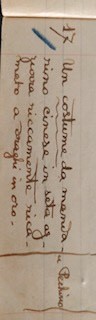 17 Un costume da manda-
Pechino
rino cinese in seta az-
zurra riccamente rica-
mato a draghi in oro.